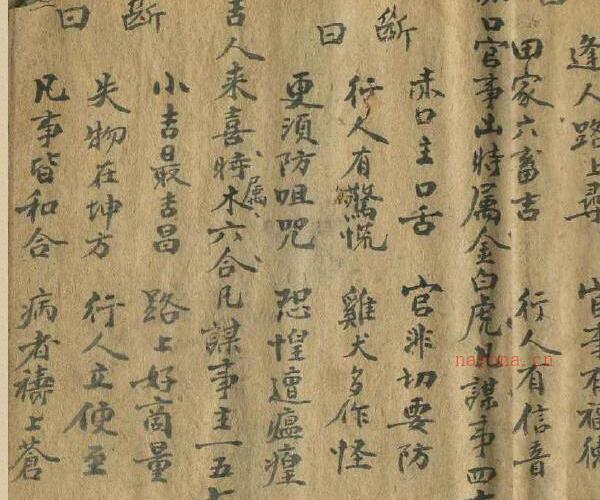 逢人路上尋 官事有福德
田家六畜吉 行人有信音
口官事凶時属金白虎凡謀事四
斷曰
赤口主口舌 官非切要防
行人有驚慌 雞犬多作怪
更須防咀咒 恐惶遭瘟
吉人来喜時属木六合凡謀事主一五七
斷曰
小吉最吉昌 路上好商量
失物在坤方 行人立便至
凡事皆和合 病者禱上蒼